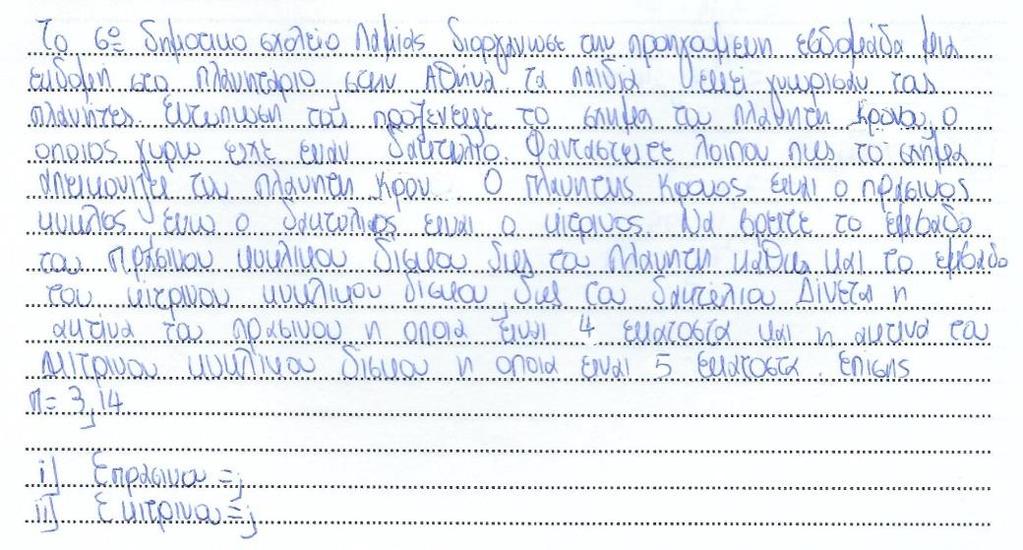 Το 6º δημοτικο σχολειο Λαμιας διοργανωσε την προηγουμενη εβδομάδα μια
εκδρομη στο πλανητάριο στην Αθήνα. τα παιδιά εκει γνωρισαν τους
πλανήτες. Εντυπωση τους προξενησε το σχημα του πλανητη Κρονου ο
οποιος γυρω ειχε εναν δακτυλιο. Φανταστειτε λοιπον πως το σχήμα
απεικονιζει τον πλανητη κρον. Ο πλανητης Κρονος ειναι ο πράσινος
κυκλος ενω ο δακτυλιος ειναι ο κιτρινος. Να βρειτε το εμβαδο
του πράσινου κυκλικου δισκου δης του πλανητη καθως και το εμβαδο
του κιτρινου κυκλικου δισκου δης του δακτυλιου Δίνεται η
ακτινα του πρασινου η οποια ειναι 4 εκατοστα και η ακτινα του
κιτρινου κυκλικου δισκου η οποια ειναι 5 εκατοστα. Επισης
π= 3,14
i] Επράσινου =;
ii] Εκιτρινου=;